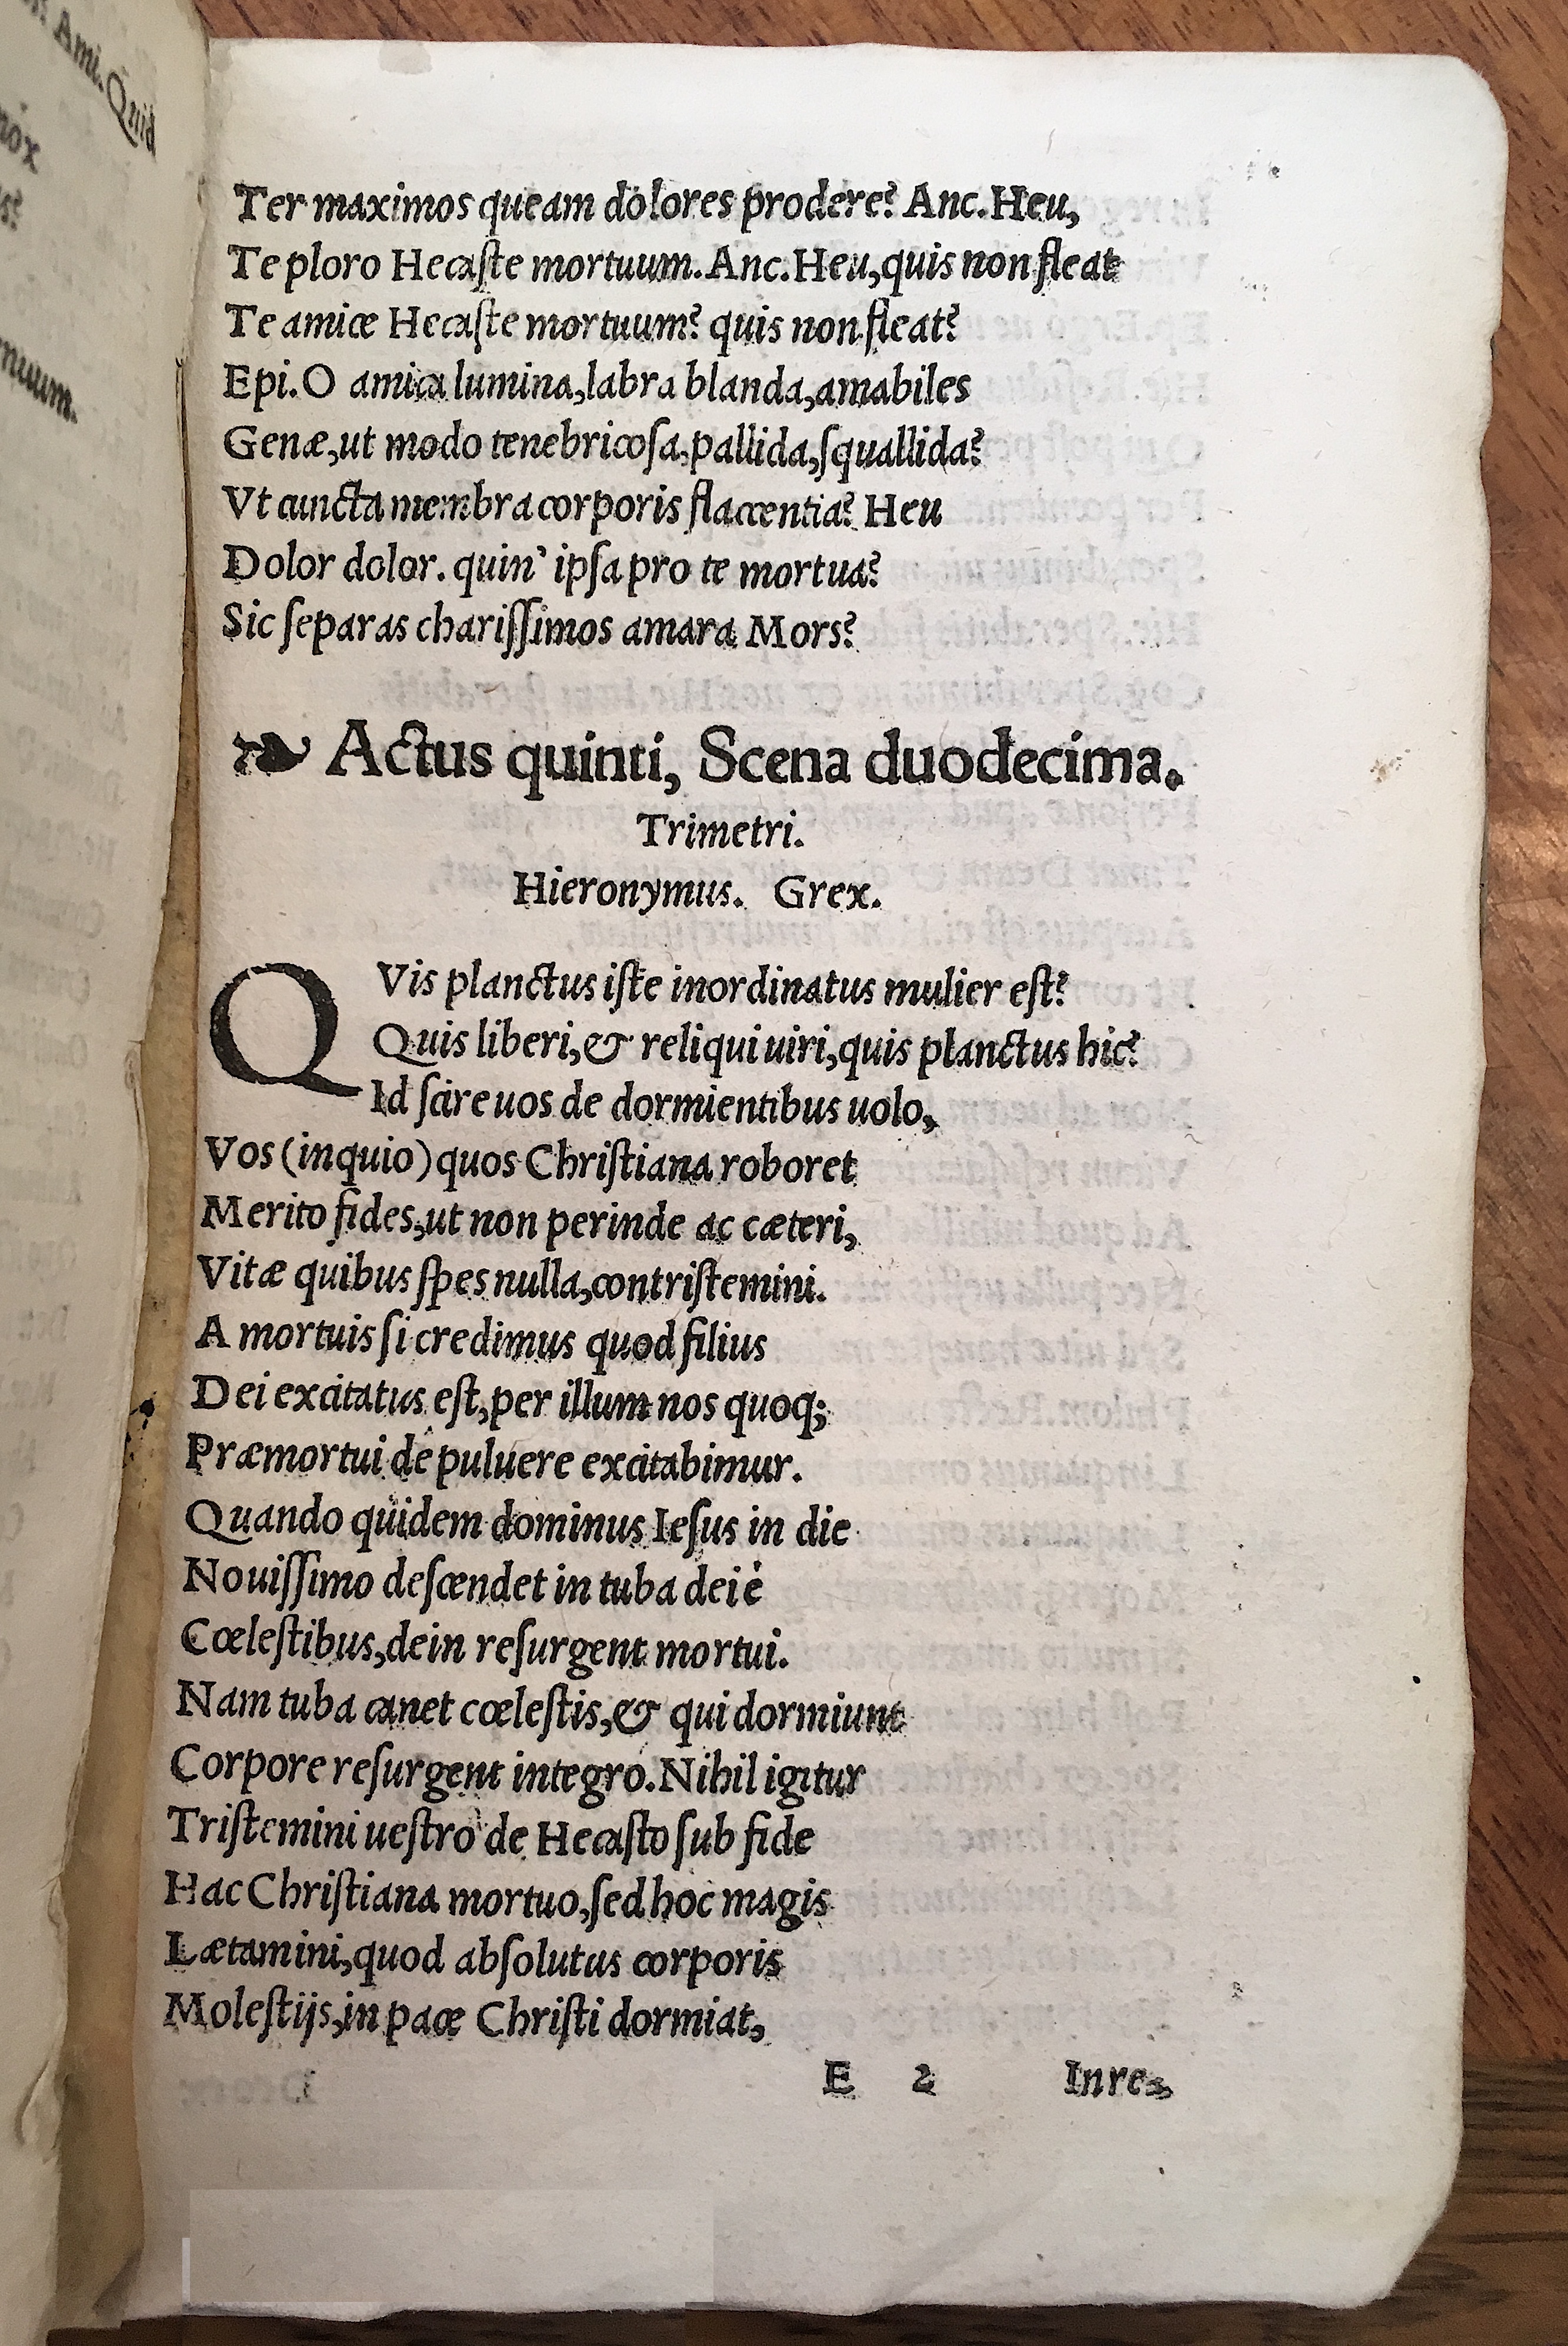 Ami. Quid
nox
nuum.
Ter maximos queam dolores prodere? Anc. Heu,
Te ploro Hecaſte mortuum. Anc. Heu, quis non fleat
Te amice Hecaſte mortuum? quis non fleat?
Epi. O amica lumina, labra blanda, amabiles
Genæ, ut modo tenebricoſa, pallida, ſquallida?
Vt cuncta membra corporis flaccentia? Heu
Dolor dolor. quin' ipſa pro te mortua?
Sic ſeparas chariſſimos amara Mors?
❧ Actus quinti, Scena duodecima.
Trimetri.
Hieronymus. Grex.
QVis planctus iſte inordinatus mulier eſt?
Quis liberi, & reliqui uiri, quis planctus hic?
Id ſcire uos de dormientibus uolo,
Vos (inquio) quos Chriſtiana roboret
Merito fides, ut non perinde ac cæteri,
Vitæ quibus ſpes nulla, contriſtemini.
A mortuis ſi credimus quod filius
Dei excitatus eſt, per illum nos quoq;
Præmortui de puluere excitabimur.
Quando quidem dominus Ieſus in die
Nouiſſimo deſcendet in tuba dei è
Cœleſtibus, dein reſurgent mortui.
Nam tuba canet cœleſtis, & qui dormiunt
Corpore reſurgent integro. Nihil igitur
Triſtemini ueſtro de Hecaſto ſub fide
Hac Chriſtiana mortuo, ſed hoc magis
Lætamini, quod abſolutus corporis
Moleſtijs, in pace Chriſti dormiat,
E 2 Inre⸗